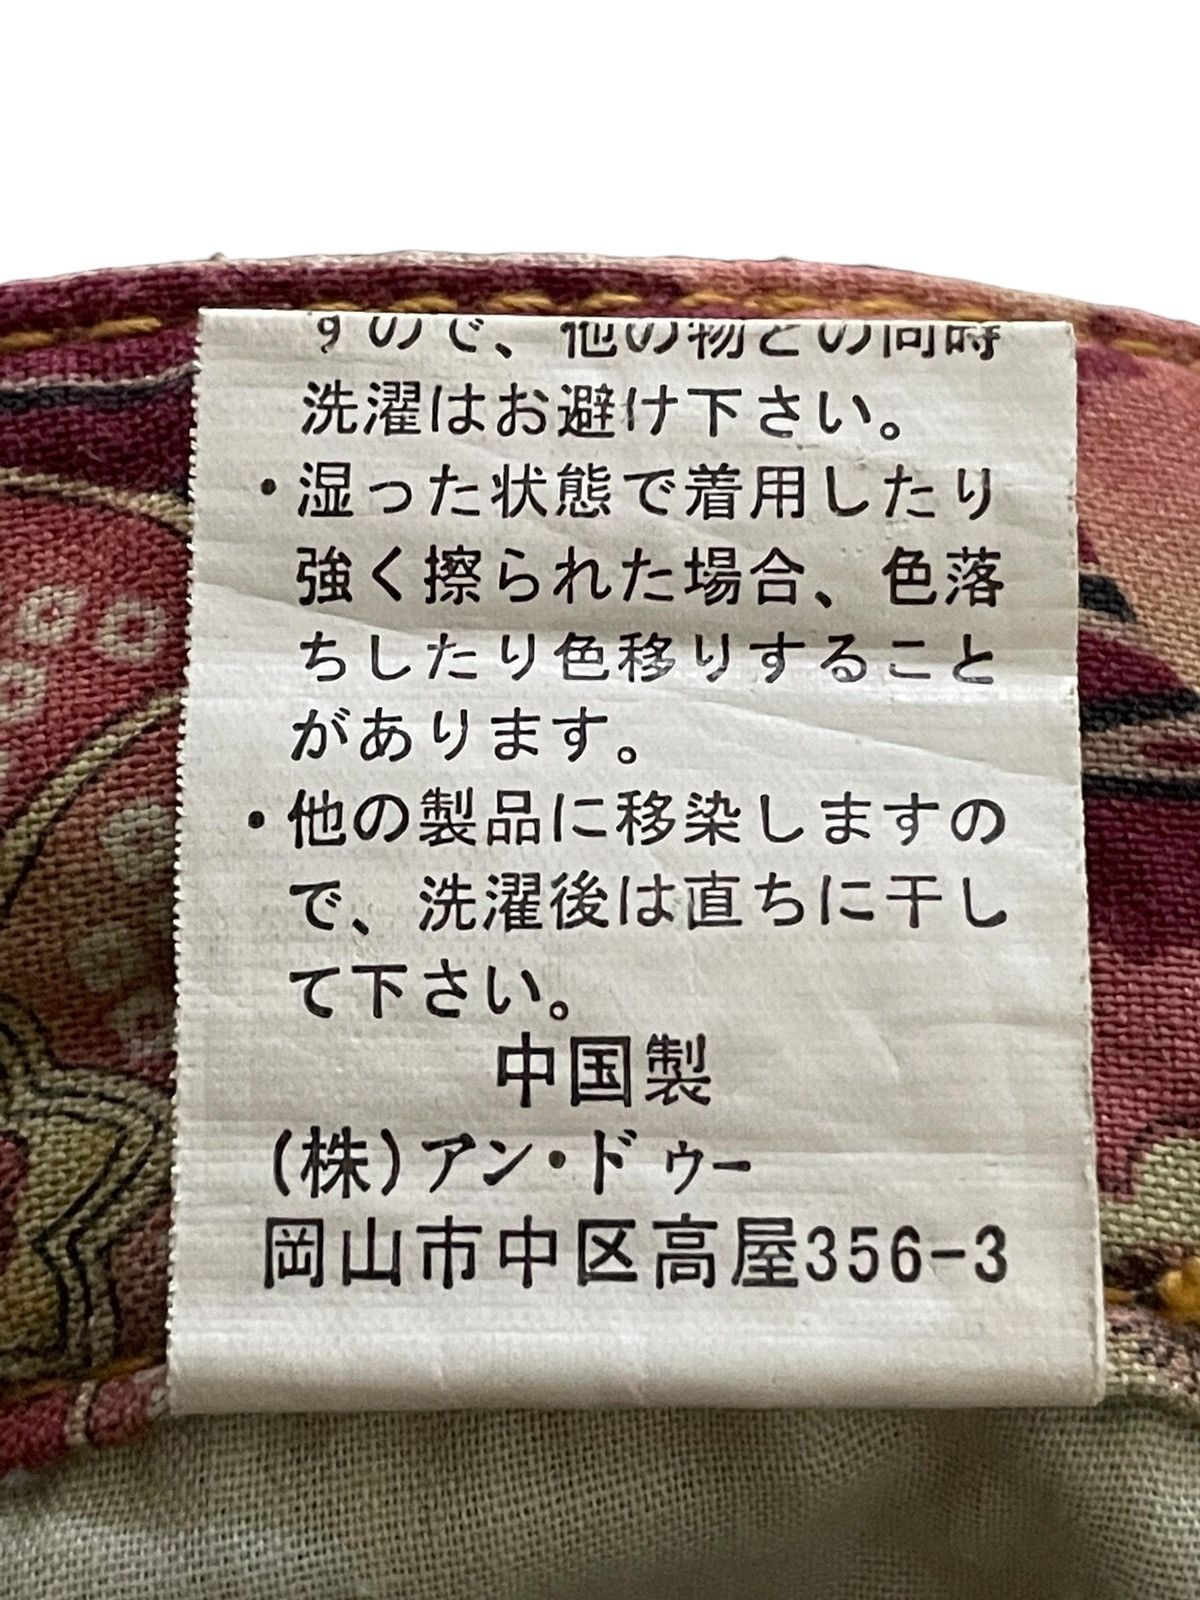 すので、他の物との同時
洗濯はお避け下さい。
・湿った状態で着用したり
強く擦られた場合、色落
ちしたり色移りすること
があります。
・他の製品に移染しますの
で、洗濯後は直ちに干し
て下さい。
中国製
(株)アン・ドゥー
岡山市中区高屋356-3